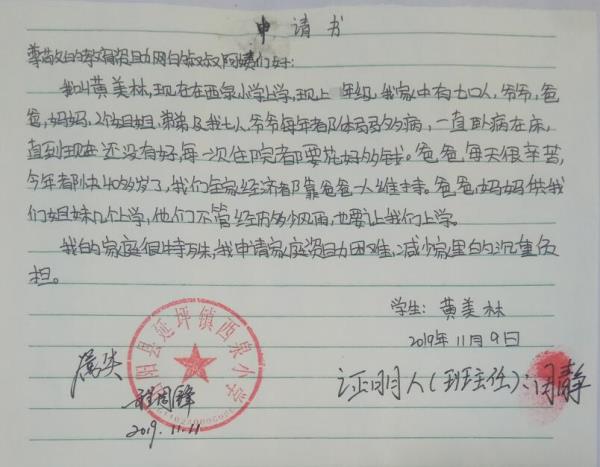 申请书
尊敬的教育资助网的叔叔阿姨们好:
我叫黄美林,现在在西泉小学上学,现上 年级,我家中有七口人,爷爷,爸
爸,妈妈,2个姐姐,弟弟及我七人,爷爷每年都体弱多病,一直卧病在床,
直到现在还没有好,每一次住院都要花好多钱。爸爸,每天很辛苦,
今年都快40多岁了,我们全家经济都靠爸爸一人维持。爸爸,妈妈供我
们姐妹几个上学,他们不管经历多少风雨,也要让我们上学。
我的家庭很特殊,我申请家庭资助困难,减少家里的沉重负
担。
学生:黄美林
2019年11月9日
阳县延坪镇西泉小学
属实
2019.11.11
证明人(班主任):闭静